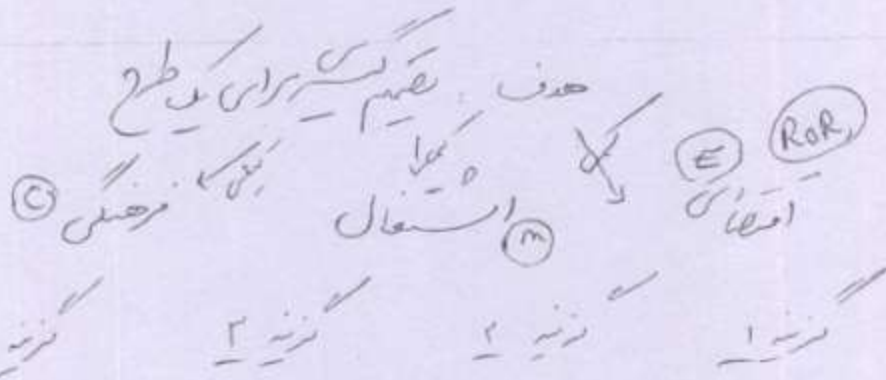 هدف : تصمیم گیری برای یک طرح
RoR E کمی کیفی
اقتصادی اشتغال m فرهنگی C
گزینه ۱ گزینه ۲ گزینه ۳ گزینه